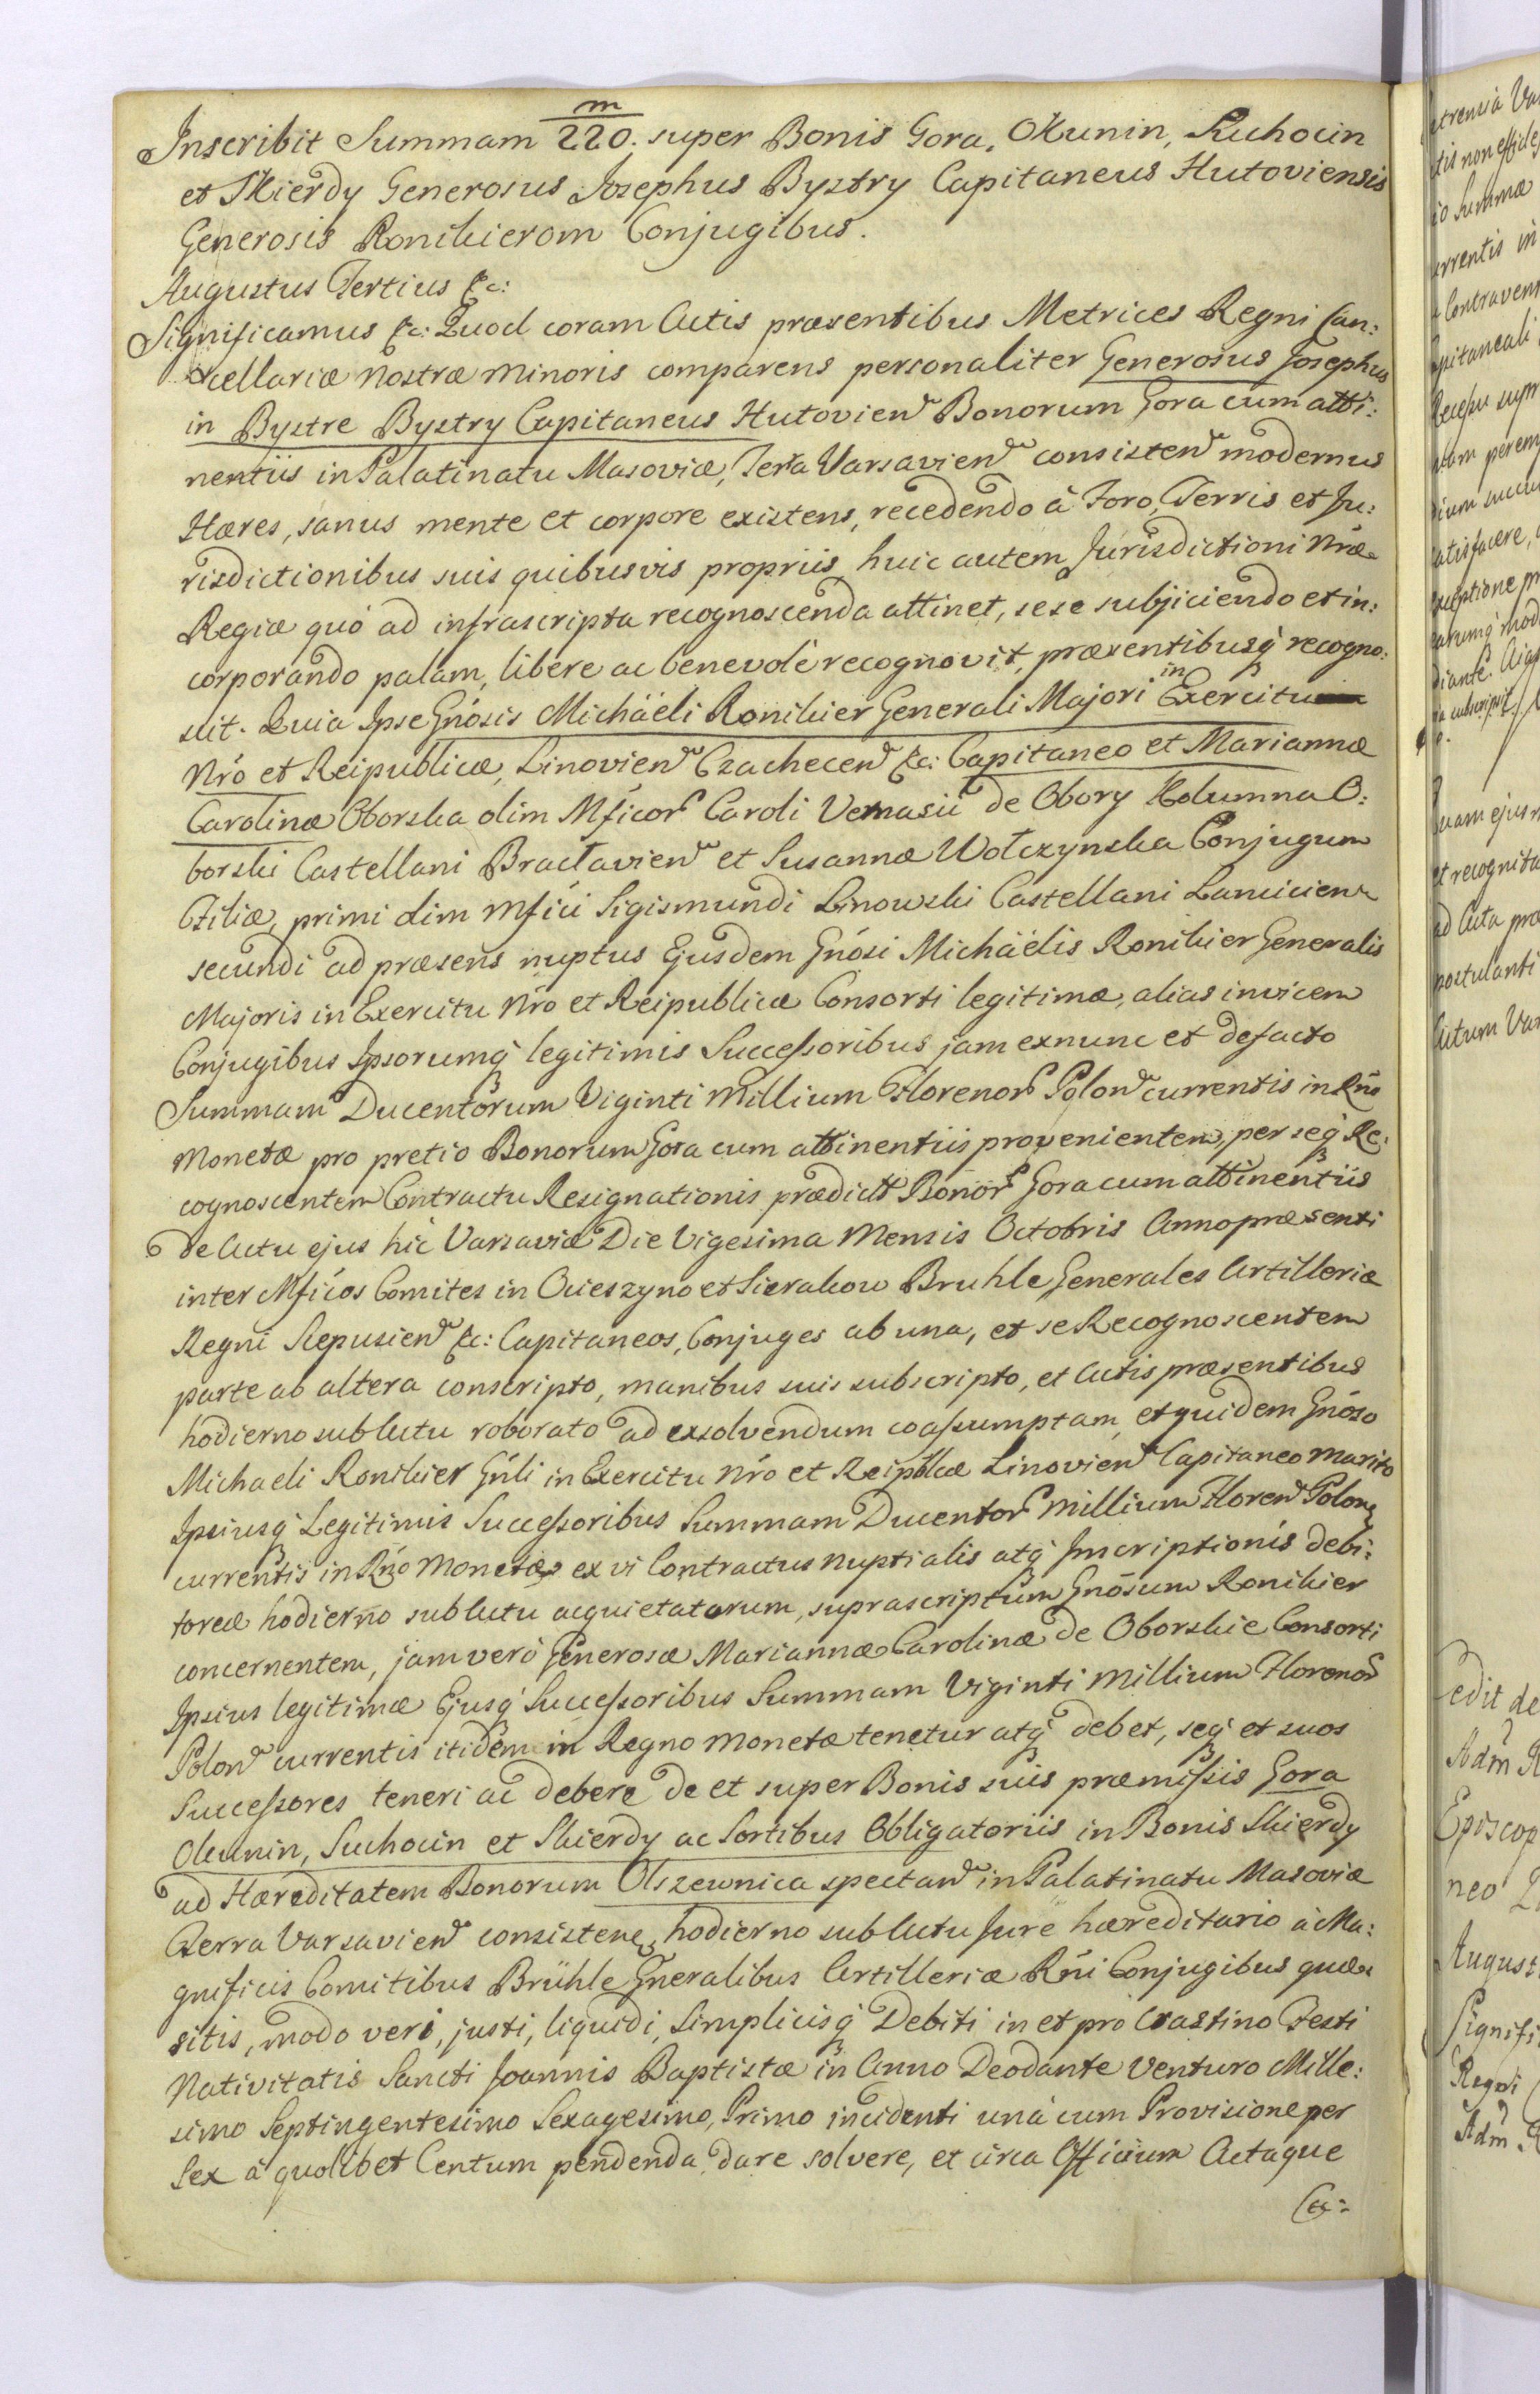 m
Inscribit Summam 220. super Bonis Gora, Okunin, Suchocin
et Skierdy Generosus Josephus Bystry Capitaneus Hutoviensis
Generosis Ronikierom Conjugibus.
Augustus Tertius &c:
Significamus &c: Quod coram Actis præsentibus Metrices Regni Can:
cellariæ Nostræ Minoris comparens personaliter Generosus Josephus
in Bystre Bystry Capitaneus Hutovien Bonorum Gora cum atti:
nentiis in Palatinatu Masoviæ, Terra Varsavien consisten modernus
Hæres, sanus mente et corpore existens, recedendo à Foro, Terris et Ju:
risdictionibus suis quibusvis propriis, huic autem Jurisdictioni Nræ
Regiæ quó ad infrascripta recognoscenda attinet, sese subjiciendo et in:
corporando palam, libere ac benevolè recognovit, præsentibusq recogno:
scit. Quia Ipse Gnósis Michäeli Ronikier Generali Majori in Exercitu
Nró et Reipublicæ, Linovien Czachecen &c: Capitaneo et Mariannæ
Carolinæ Oborska olim Mficor Caroli Vernasii de Obory Kolumna O:
borski Castellani Braclavien et Susannæ Wołczynska Conjugum
Filiæ, primi olim Mfici Sigismundi Linowski Castellani Lancicien
secundi ad præsens nuptus Ejusdem Gnósi Michäelis Ronikier Generalis
Majoris in Exercitu Nró et Reipublicæ Consorti legitimæ, alias invicem
Conjugibus Ipsorumq legitimis Successoribus jam exnunc et defacto
Summam Ducentorum Viginti Millium Florenor Polon currentis in Rño
Monetæ pro pretio Bonorum Gora cum attinentiis provenientem, per seq Re:
cognoscentem Contractu Resignationis prædictt Bonor Gora cum attinentiis
de Actu ejus hic Varsaviæ Die Vigesima Mensis Octobris Anno præsenti
inter Mficos Comites in Ocieszyno et Sierakow Bruhle Generales Artilleriæ
Regni Scepusien &c: Capitaneos, Conjuges ab una, et se Recognoscentem
parte ab altera conscripto, manibus suis subscripto, et Actis præsentibus
hodierno sub Actu roborato ad exsolvendum coassumptam, et quidem Gnóso
Michaeli Ronikier Gñli in Exercitu Nró et Reipblcæ Linovien Capitaneo Marito
Ipsiusq Legitimis Successoribus Summam Ducentor Millium Floren Polon
currentis in Rño Monetæ ex vi Contractus nuptialis atq Inscriptionis debi:
toreæ hodierno sub Actu acquietatorum, suprascriptum Gnósum Ronikier
concernentem, jam veró Generosæ Mariannæ Carolinæ de Oborskie Consorti
Ipsius legitimæ Ejusq Successoribus Summam Viginti Millium Florenor
Polon currentis itidem in Regno Monetæ tenetur atq debet, seq et suos
Successores teneri ac debere de et super Bonis suis præmissis Gora
Okunin, Suchocin et Skierdy ac Sortibus Obligatoriis in Bonis Skierdy
ad Hæreditatem Bonorum Olszewnica spectan in Palatinatu Masoviæ
Terra Varsavien consisten, hodierno sub Actu Jure hæreditario à Ma:
gnificis Comitibus Brühle Gneralibus Artilleriæ Rñi Conjugibus quæ
sitis, modo veri, justi, liquidi, Simplicisq Debiti in et pro Crastino Festi
Nativitatis Sancti Joannis Baptistæ in Anno Deodante venturo Mille:
simo Septingentesimo Sexagesimo Primo incidenti unà cum Provisione per
Sex à quolibet Centum pendenda, dare solvere, et circa Officium Actaque